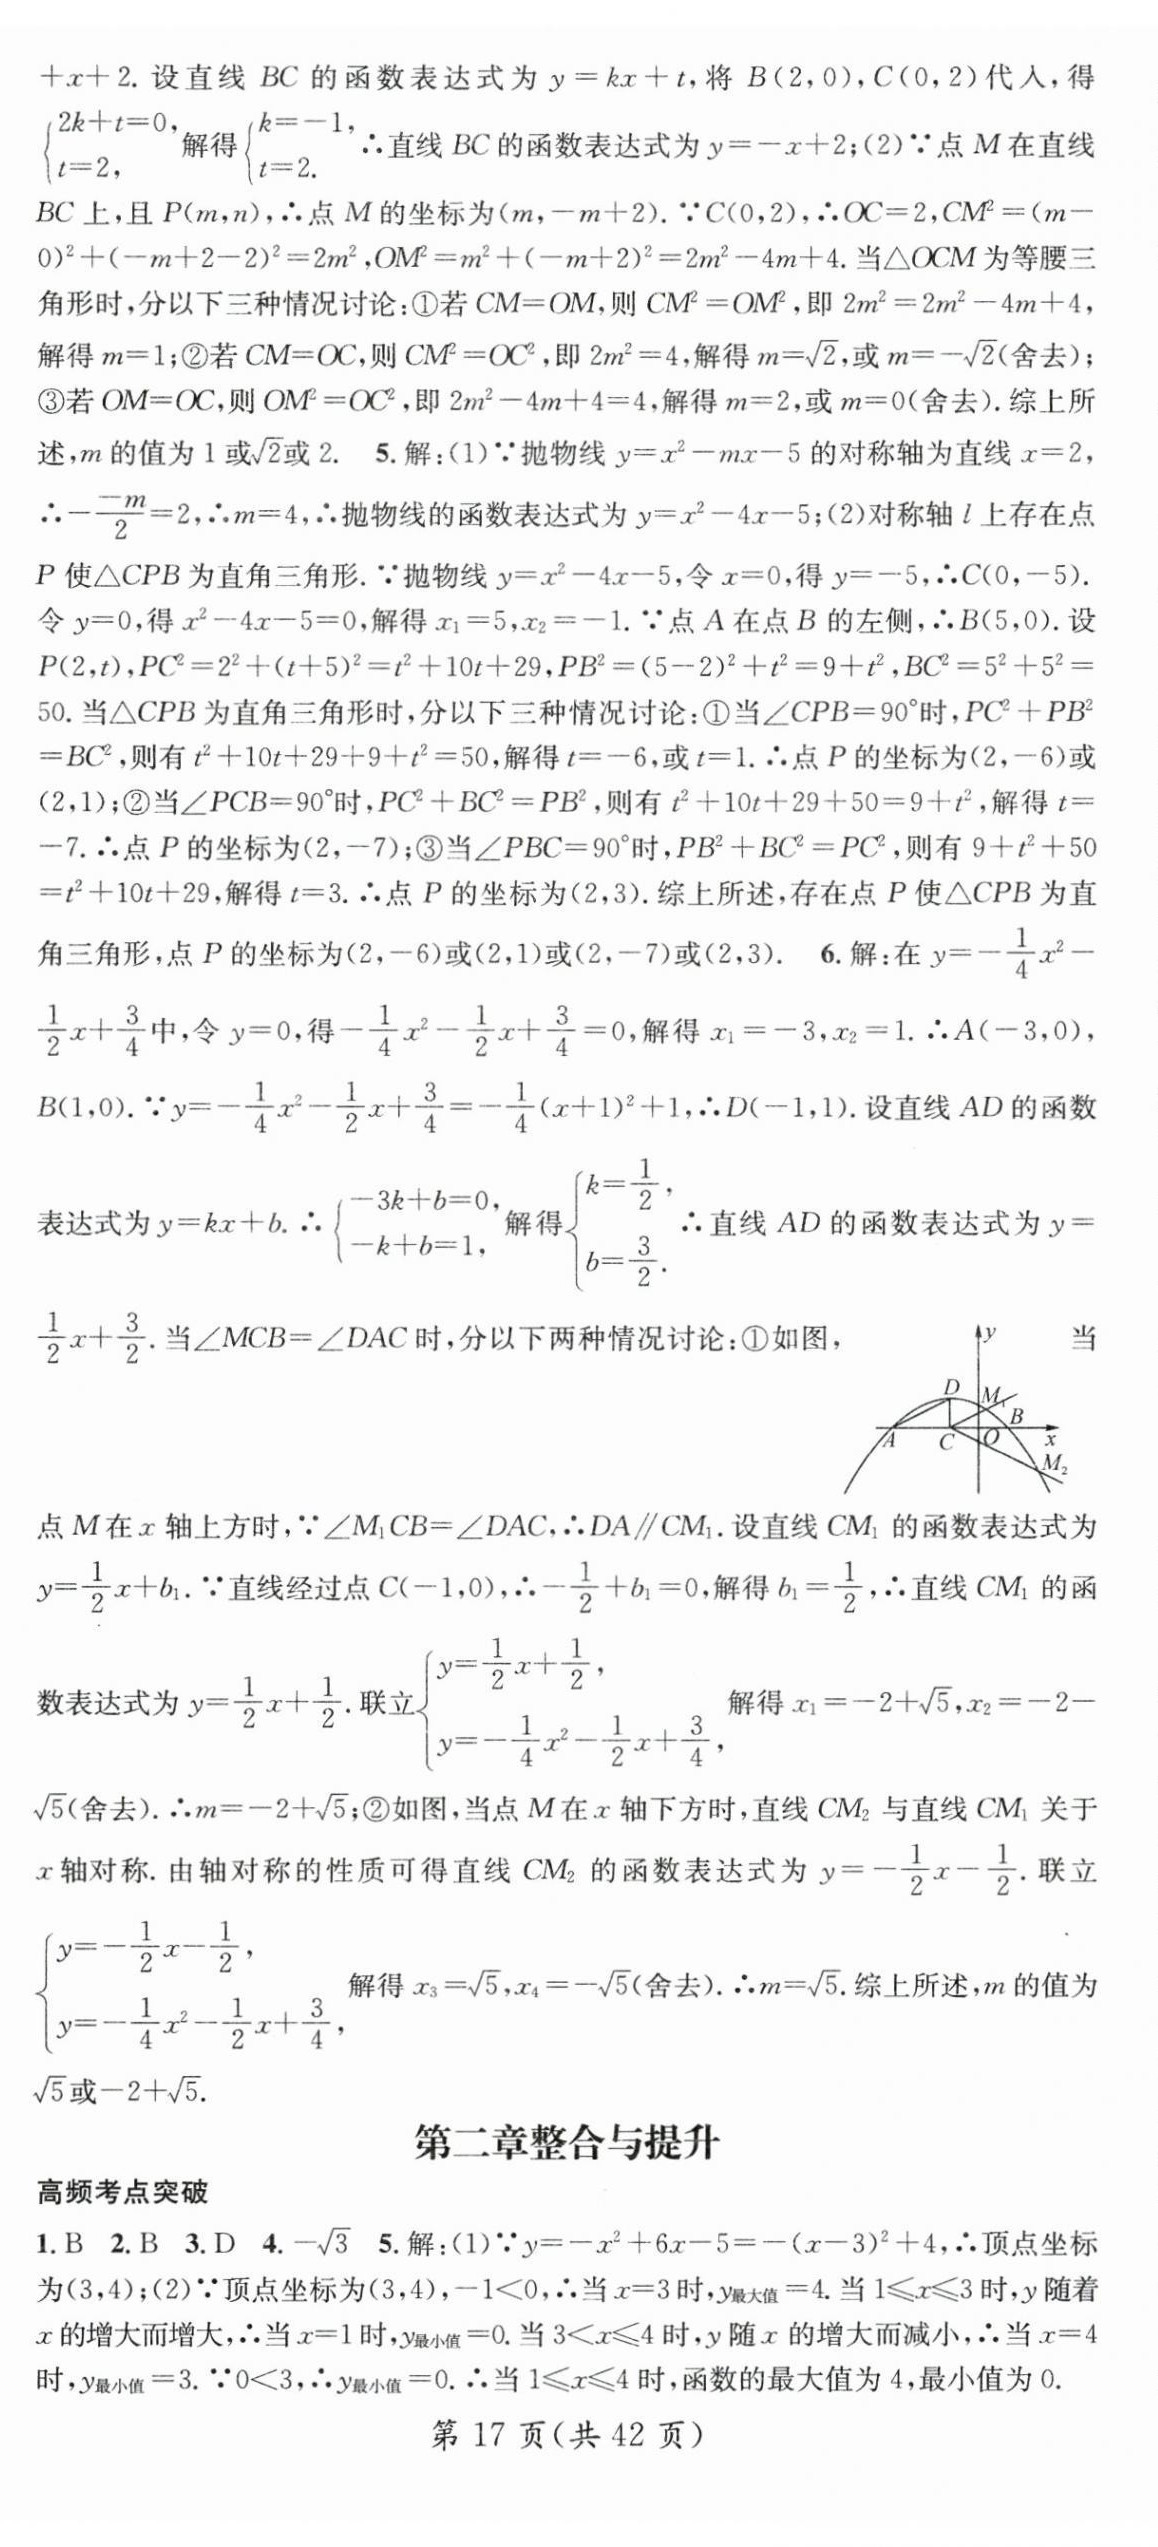 +x+2. 设直线 BC 的函数表达式为 y=kx+t,将 B(2,0),C(0,2)代入,得
{2k+t=0, t=2, 解得{k=-1, t=2. ∴直线 BC 的函数表达式为 y=-x+2;(2)∵点 M 在直线
BC 上,且 P(m,n),∴点 M 的坐标为(m,-m+2). ∵C(0,2),∴OC=2,CM²=(m-
0)²+(-m+2-2)²=2m²,OM²=m²+(-m+2)²=2m²-4m+4. 当△OCM 为等腰三
角形时,分以下三种情况讨论:①若 CM=OM,则 CM²=OM²,即 2m²=2m²-4m+4,
解得 m=1;②若 CM=OC,则 CM²=OC²,即 2m²=4,解得 m=√2,或 m=-√2(舍去);
③若 OM=OC,则 OM²=OC²,即 2m²-4m+4=4,解得 m=2,或 m=0(舍去). 综上所
述,m 的值为 1 或√2或 2. 5. 解:(1)∵抛物线 y=x²-mx-5 的对称轴为直线 x=2,
∴-\frac{-m}{2}=2,∴m=4,∴抛物线的函数表达式为 y=x²-4x-5;(2)对称轴 l 上存在点
P 使△CPB 为直角三角形. ∵抛物线 y=x²-4x-5,令 x=0,得 y=-5,∴C(0,-5).
令 y=0,得 x²-4x-5=0,解得 x₁=5,x₂=-1. ∵点 A 在点 B 的左侧,∴B(5,0). 设
P(2,t),PC²=2²+(t+5)²=t²+10t+29,PB²=(5-2)²+t²=9+t²,BC²=5²+5²=
50. 当△CPB 为直角三角形时,分以下三种情况讨论:①当∠CPB=90°时,PC²+PB²
=BC²,则有 t²+10t+29+9+t²=50,解得 t=-6,或 t=1. ∴点 P 的坐标为(2,-6)或
(2,1);②当∠PCB=90°时,PC²+BC²=PB²,则有 t²+10t+29+50=9+t²,解得 t=
-7. ∴点 P 的坐标为(2,-7);③当∠PBC=90°时,PB²+BC²=PC²,则有 9+t²+50
=t²+10t+29,解得 t=3. ∴点 P 的坐标为(2,3). 综上所述,存在点 P 使△CPB 为直
角三角形,点 P 的坐标为(2,-6)或(2,1)或(2,-7)或(2,3). 6. 解:在 y=-\frac{1}{4}x²-
\frac{1}{2}x+\frac{3}{4}中,令 y=0,得-\frac{1}{4}x²-\frac{1}{2}x+\frac{3}{4}=0,解得 x₁=-3,x₂=1. ∴A(-3,0),
B(1,0). ∵y=-\frac{1}{4}x²-\frac{1}{2}x+\frac{3}{4}=-\frac{1}{4}(x+1)²+1,∴D(-1,1). 设直线 AD 的函数
表达式为 y=kx+b. ∴{-3k+b=0, -k+b=1, 解得{k=\frac{1}{2}, b=\frac{3}{2}. ∴直线 AD 的函数表达式为 y=
\frac{1}{2}x+\frac{3}{2}. 当∠MCB=∠DAC 时,分以下两种情况讨论:①如图, 当
y
D M₁ B
A C O x
M₂
点 M 在 x 轴上方时,∵∠M₁CB=∠DAC,∴DA∥CM₁. 设直线 CM₁ 的函数表达式为
y=\frac{1}{2}x+b₁. ∵直线经过点 C(-1,0),∴-\frac{1}{2}+b₁=0,解得 b₁=\frac{1}{2},∴直线 CM₁ 的函
数表达式为 y=\frac{1}{2}x+\frac{1}{2}. 联立{y=\frac{1}{2}x+\frac{1}{2}, y=-\frac{1}{4}x²-\frac{1}{2}x+\frac{3}{4}, 解得 x₁=-2+√5,x₂=-2-
√5(舍去). ∴m=-2+√5;②如图,当点 M 在 x 轴下方时,直线 CM₂ 与直线 CM₁ 关于
x 轴对称. 由轴对称的性质可得直线 CM₂ 的函数表达式为 y=-\frac{1}{2}x-\frac{1}{2}. 联立
{y=-\frac{1}{2}x-\frac{1}{2}, y=-\frac{1}{4}x²-\frac{1}{2}x+\frac{3}{4}, 解得 x₃=√5,x₄=-√5(舍去). ∴m=√5. 综上所述,m 的值为
√5或-2+√5.
第二章整合与提升
高频考点突破
1. B 2. B 3. D 4. -√3 5. 解:(1)∵y=-x²+6x-5=-(x-3)²+4,∴顶点坐标
为(3,4);(2)∵顶点坐标为(3,4),-1<0,∴当 x=3 时,y最大值=4. 当 1≤x≤3 时,y 随着
x 的增大而增大,∴当 x=1 时,y最小值=0. 当 3<x≤4 时,y 随 x 的增大而减小,∴当 x=4
时,y最小值=3. ∵0<3,∴y最小值=0. ∴当 1≤x≤4 时,函数的最大值为 4,最小值为 0.
第 17 页(共 42 页)